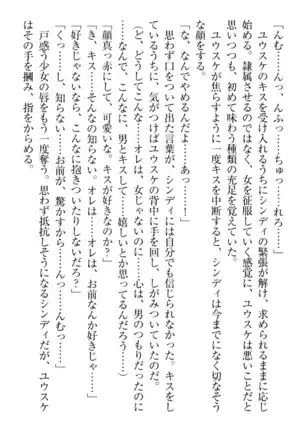 「んむ……っ、んふっ……ちゅっ……れろ……」
ユウスケのキスを受け入れるうちにシンディの緊張が解け、求められるままに応じ
始める。隷属させるのではなく、女を征服していく感覚に、ユウスケは悪いことだと
思いつつも、初めて味わう種類の充足を覚えていた。
ユウスケが焦らすように一度キスを中断すると、シンディは今までになく切なそう
な顔をする。
「な、なんでやめるんだよ……あっ……！」
思わず口をついて出た言葉が、シンディには自分でも信じられなかった。キスをし
ているうちに、気がつけばユウスケの背中に手を回し、しがみついていたのだ。
（ど、どうしてこんな……オレは、女じゃないのに……心は、男のつもりだったのに
……なんで、こんなに、男とキスして……嬉しいとか思ってるんだろう……）
「顔真っ赤にして、可愛いな。キスが好きなのか？」
「き、キス……そんなの知らない。オレは……オレは、お前なんか好きじゃ……」
「好きじゃないなら、こんなに抱きついたりしないだろ？」
「くっ……し、知らない……お前が、驚かすから……んっ……んむっ……」
戸惑う少女の唇をもう一度奪う。思わず抵抗しそうになるシンディだが、ユウスケ
はその手を掴み、指をからめる。